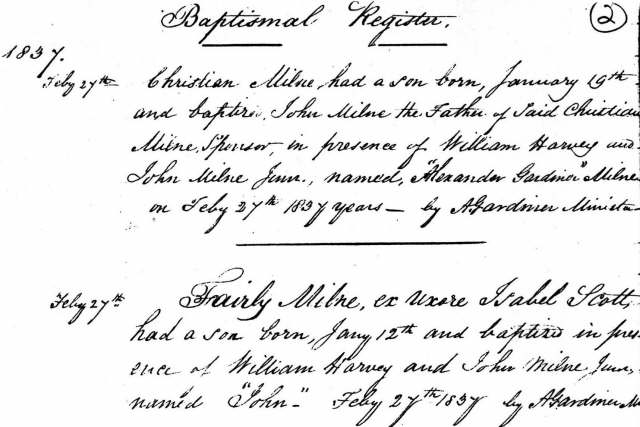 Baptismal Register. (2)
1837.
Feby 27th Christian Milne, had a son born, January 19th
and baptized, John Milne the Father of Said Christian
Milne, Sponsor, in presence of William Harvey and
John Milne Junr., named, "Alexander Gardner" Milne
on Feby 27th 1837 years— by AGardiner Minister
Feby 27th Fairly Milne, ex Uxore Isabel Scott,
had a son born, Jany 12th and baptized in pres-
ence of William Harvey and John Milne Junr,
named "John—" Feby 27th 1837 by AGardiner M